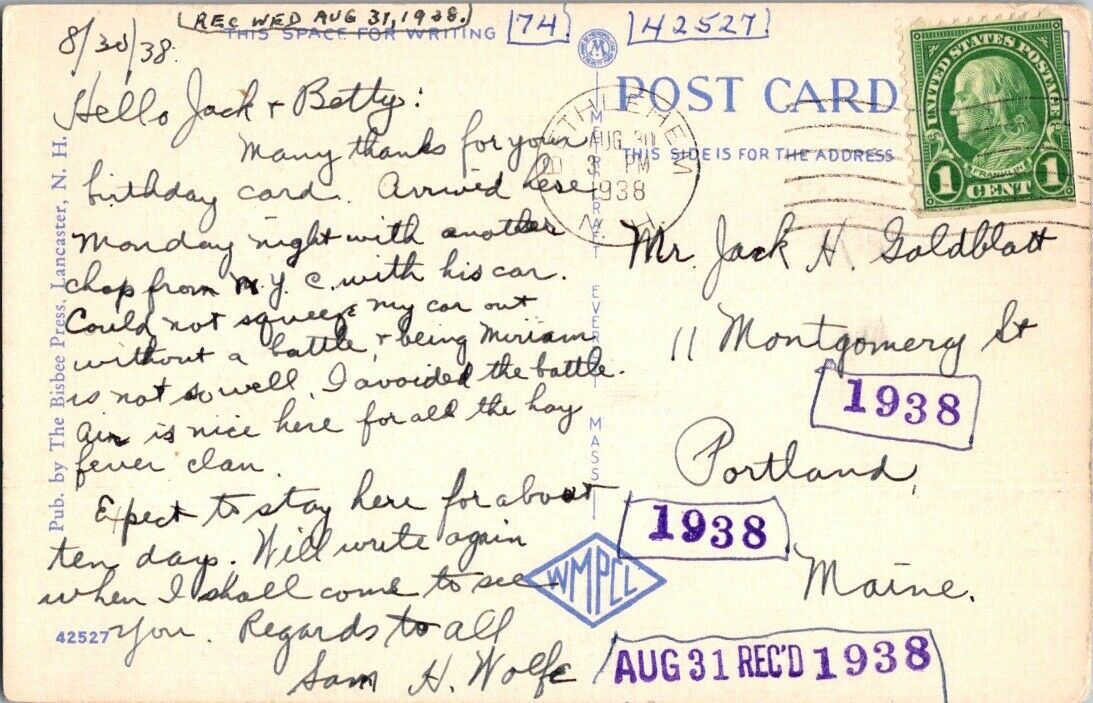 (REC WED AUG 31, 1938.)
THIS SPACE FOR WRITING
74
42527
8/30/38.
Hello Jack & Betty:
Many thanks for your
birthday card. Arrived here
Monday night with another
chap from N.Y.C. with his car.
Could not squeeze my car out
without a battle, & being Miriam
is not so well, I avoided the battle.
Air is nice here for all the hay
fever clan.
Expect to stay here for about
ten days. Will write again
when I shall come to see
you. Regards to all
Sam H. Wolfe
42527
Pub. by The Bisbee Press, Lancaster, N. H.
EVERETT MASS
WMPCO
POST CARD
THIS SIDE IS FOR THE ADDRESS
BETHLEHEM
AUG 30
3 PM
1938
N. H.
UNITED STATES POSTAGE
FRANKLIN
1 CENT 1
Mr. Jack H. Goldblatt
11 Montgomery St
1938
Portland,
1938
Maine.
AUG 31 REC'D 1938